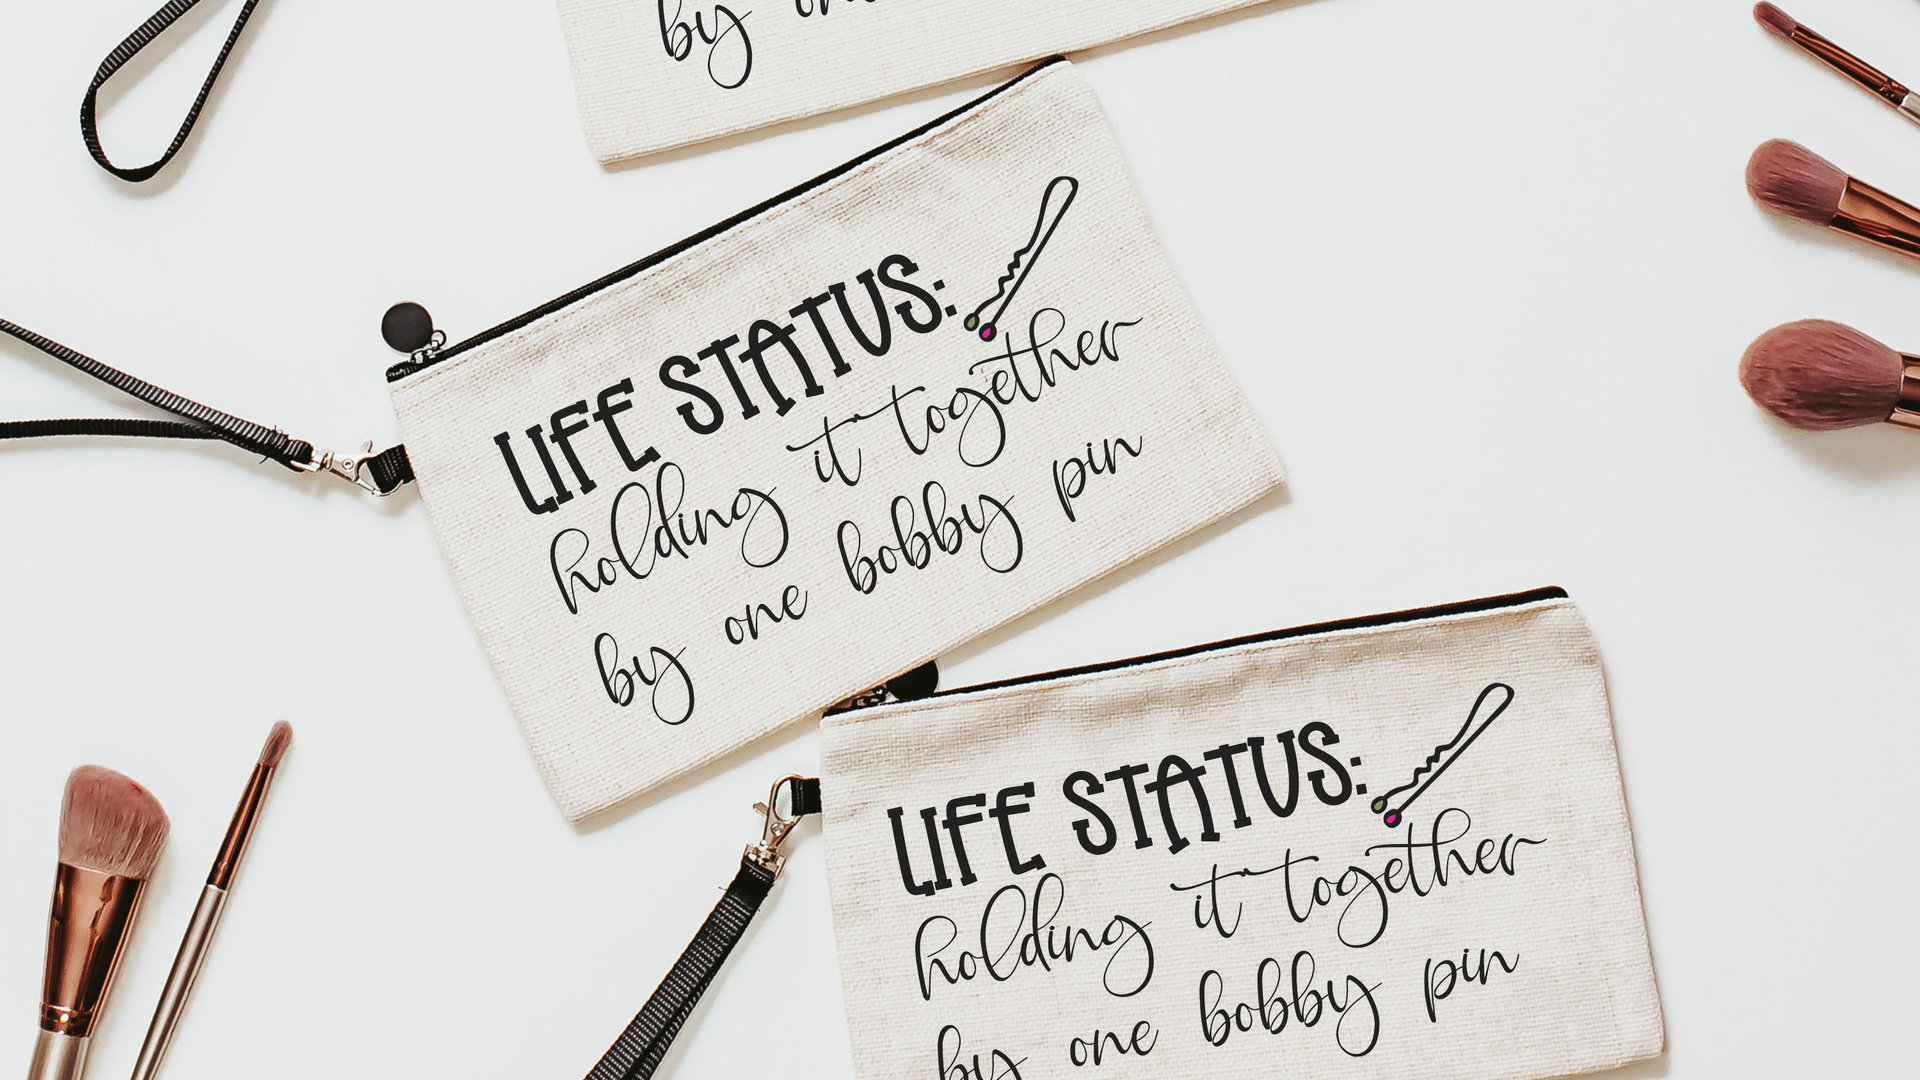 by
LIFE STATUS:
holding it together
by one bobby pin
LIFE STATUS:
holding it together
by one bobby pin